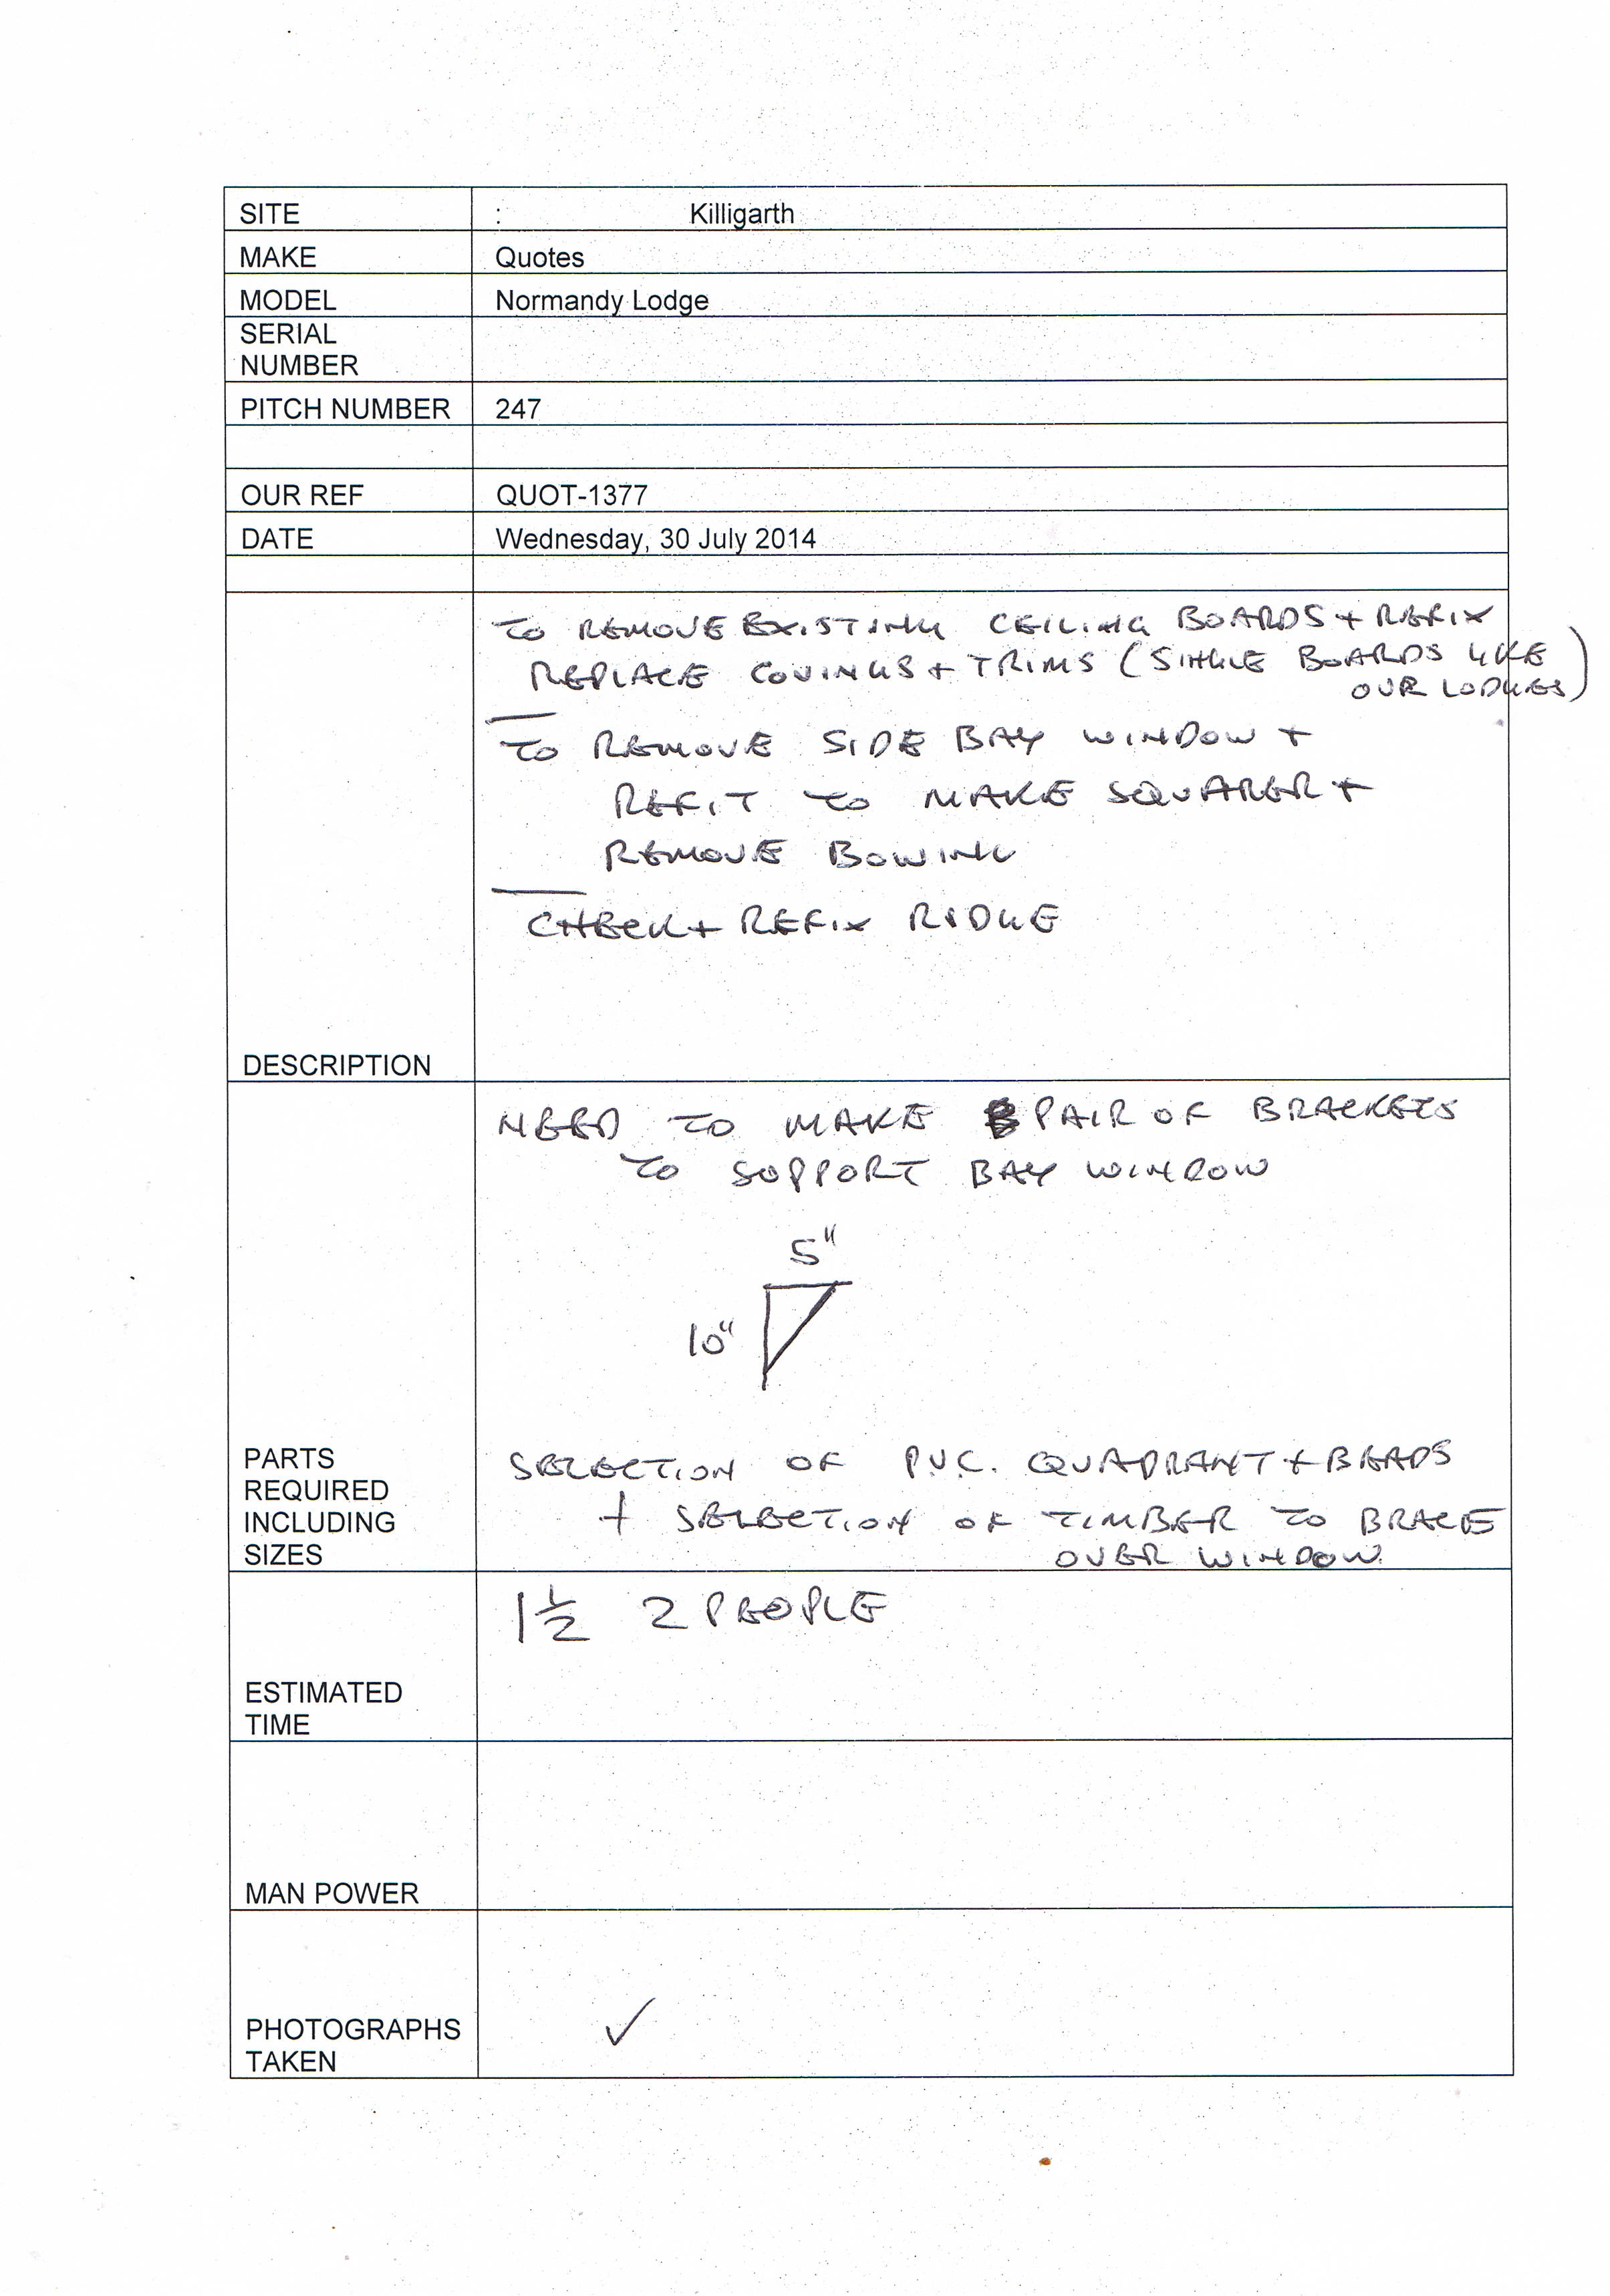 SITE : Killigarth
MAKE Quotes
MODEL Normandy Lodge
SERIAL
NUMBER
PITCH NUMBER 247
OUR REF QUOT-1377
DATE Wednesday, 30 July 2014
TO REMOVE EXISTING CEILING BOARDS + REFIX
REPLACE COVINGS + TRIMS (SINGLE BOARDS LIKE
OUR LODGES)
TO REMOVE SIDE BAY WINDOW +
REFIT TO MAKE SQUARER +
REMOVE BOWING
CHECK + REFIX RIDGE
DESCRIPTION
NEED TO MAKE PAIR OF BRACKETS
TO SUPPORT BAY WINDOW
5"
10"
PARTS
REQUIRED
INCLUDING
SIZES
SELECTION OF P.V.C. QUADRANT + BEADS
+ SELECTION OF TIMBER TO BRACE
OVER WINDOW
1½ 2 PEOPLE
ESTIMATED
TIME
MAN POWER
PHOTOGRAPHS
TAKEN
✓